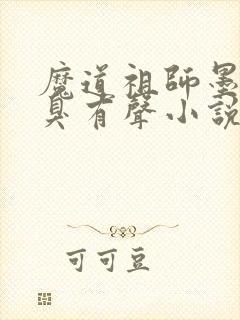 魔道祖師墨
臭有聲小說
可可豆